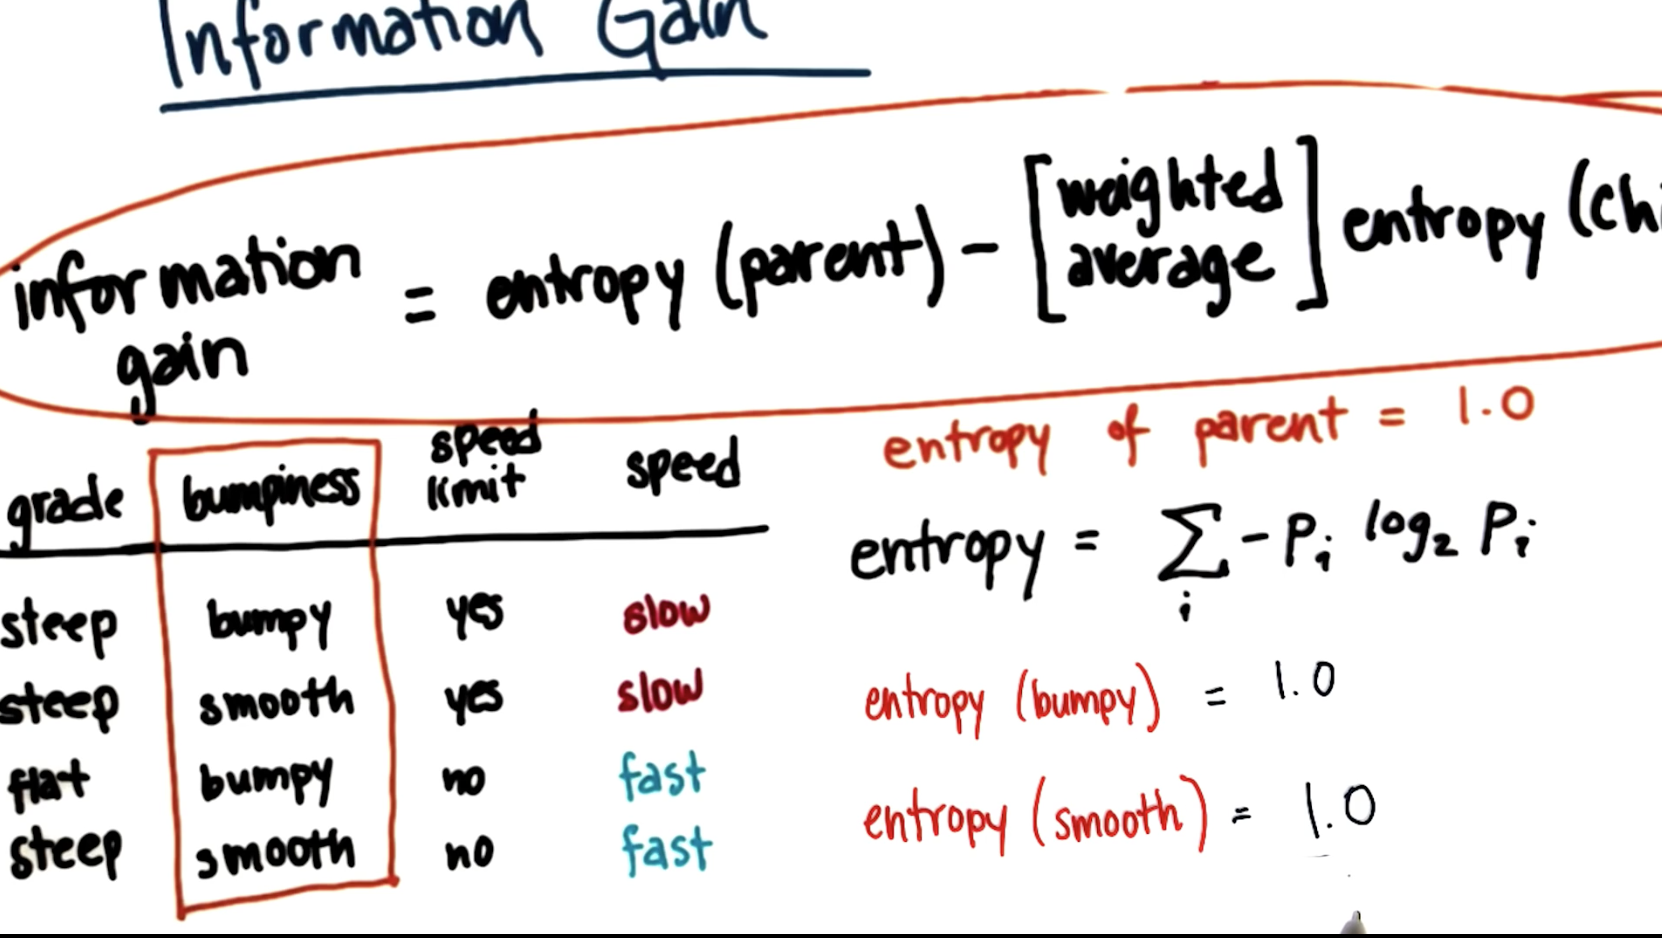 Information Gain
information gain = entropy (parent) - [weighted average] entropy (chi
entropy of parent = 1.0
grade bumpiness speed limit speed
steep bumpy yes slow
steep smooth yes slow
flat bumpy no fast
steep smooth no fast
entropy = Σ i - Pi log2 Pi
entropy (bumpy) = 1.0
entropy (smooth) = 1.0